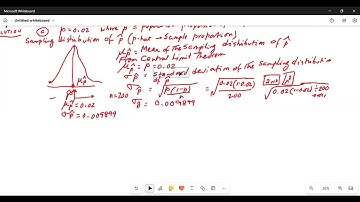 Microsoft Whiteboard
Untitled whiteboard
(a) p = 0.02 where p =
Sampling distribution of p̂ (p-hat → sample proportion)
μp̂ = Mean of the sampling distribution of p̂
From Central Limit Theorem
μp̂ = p = 0.02
σp̂ = standard deviation of the sampling distribution of p̂
σp̂ = √p(1-p)/n = √0.02(1-0.02)/200
σp̂ = 0.009899
n=200
μp̂ = 0.02
σp̂ = 0.009899
2nd x²
√0.02(1-0.02)÷200